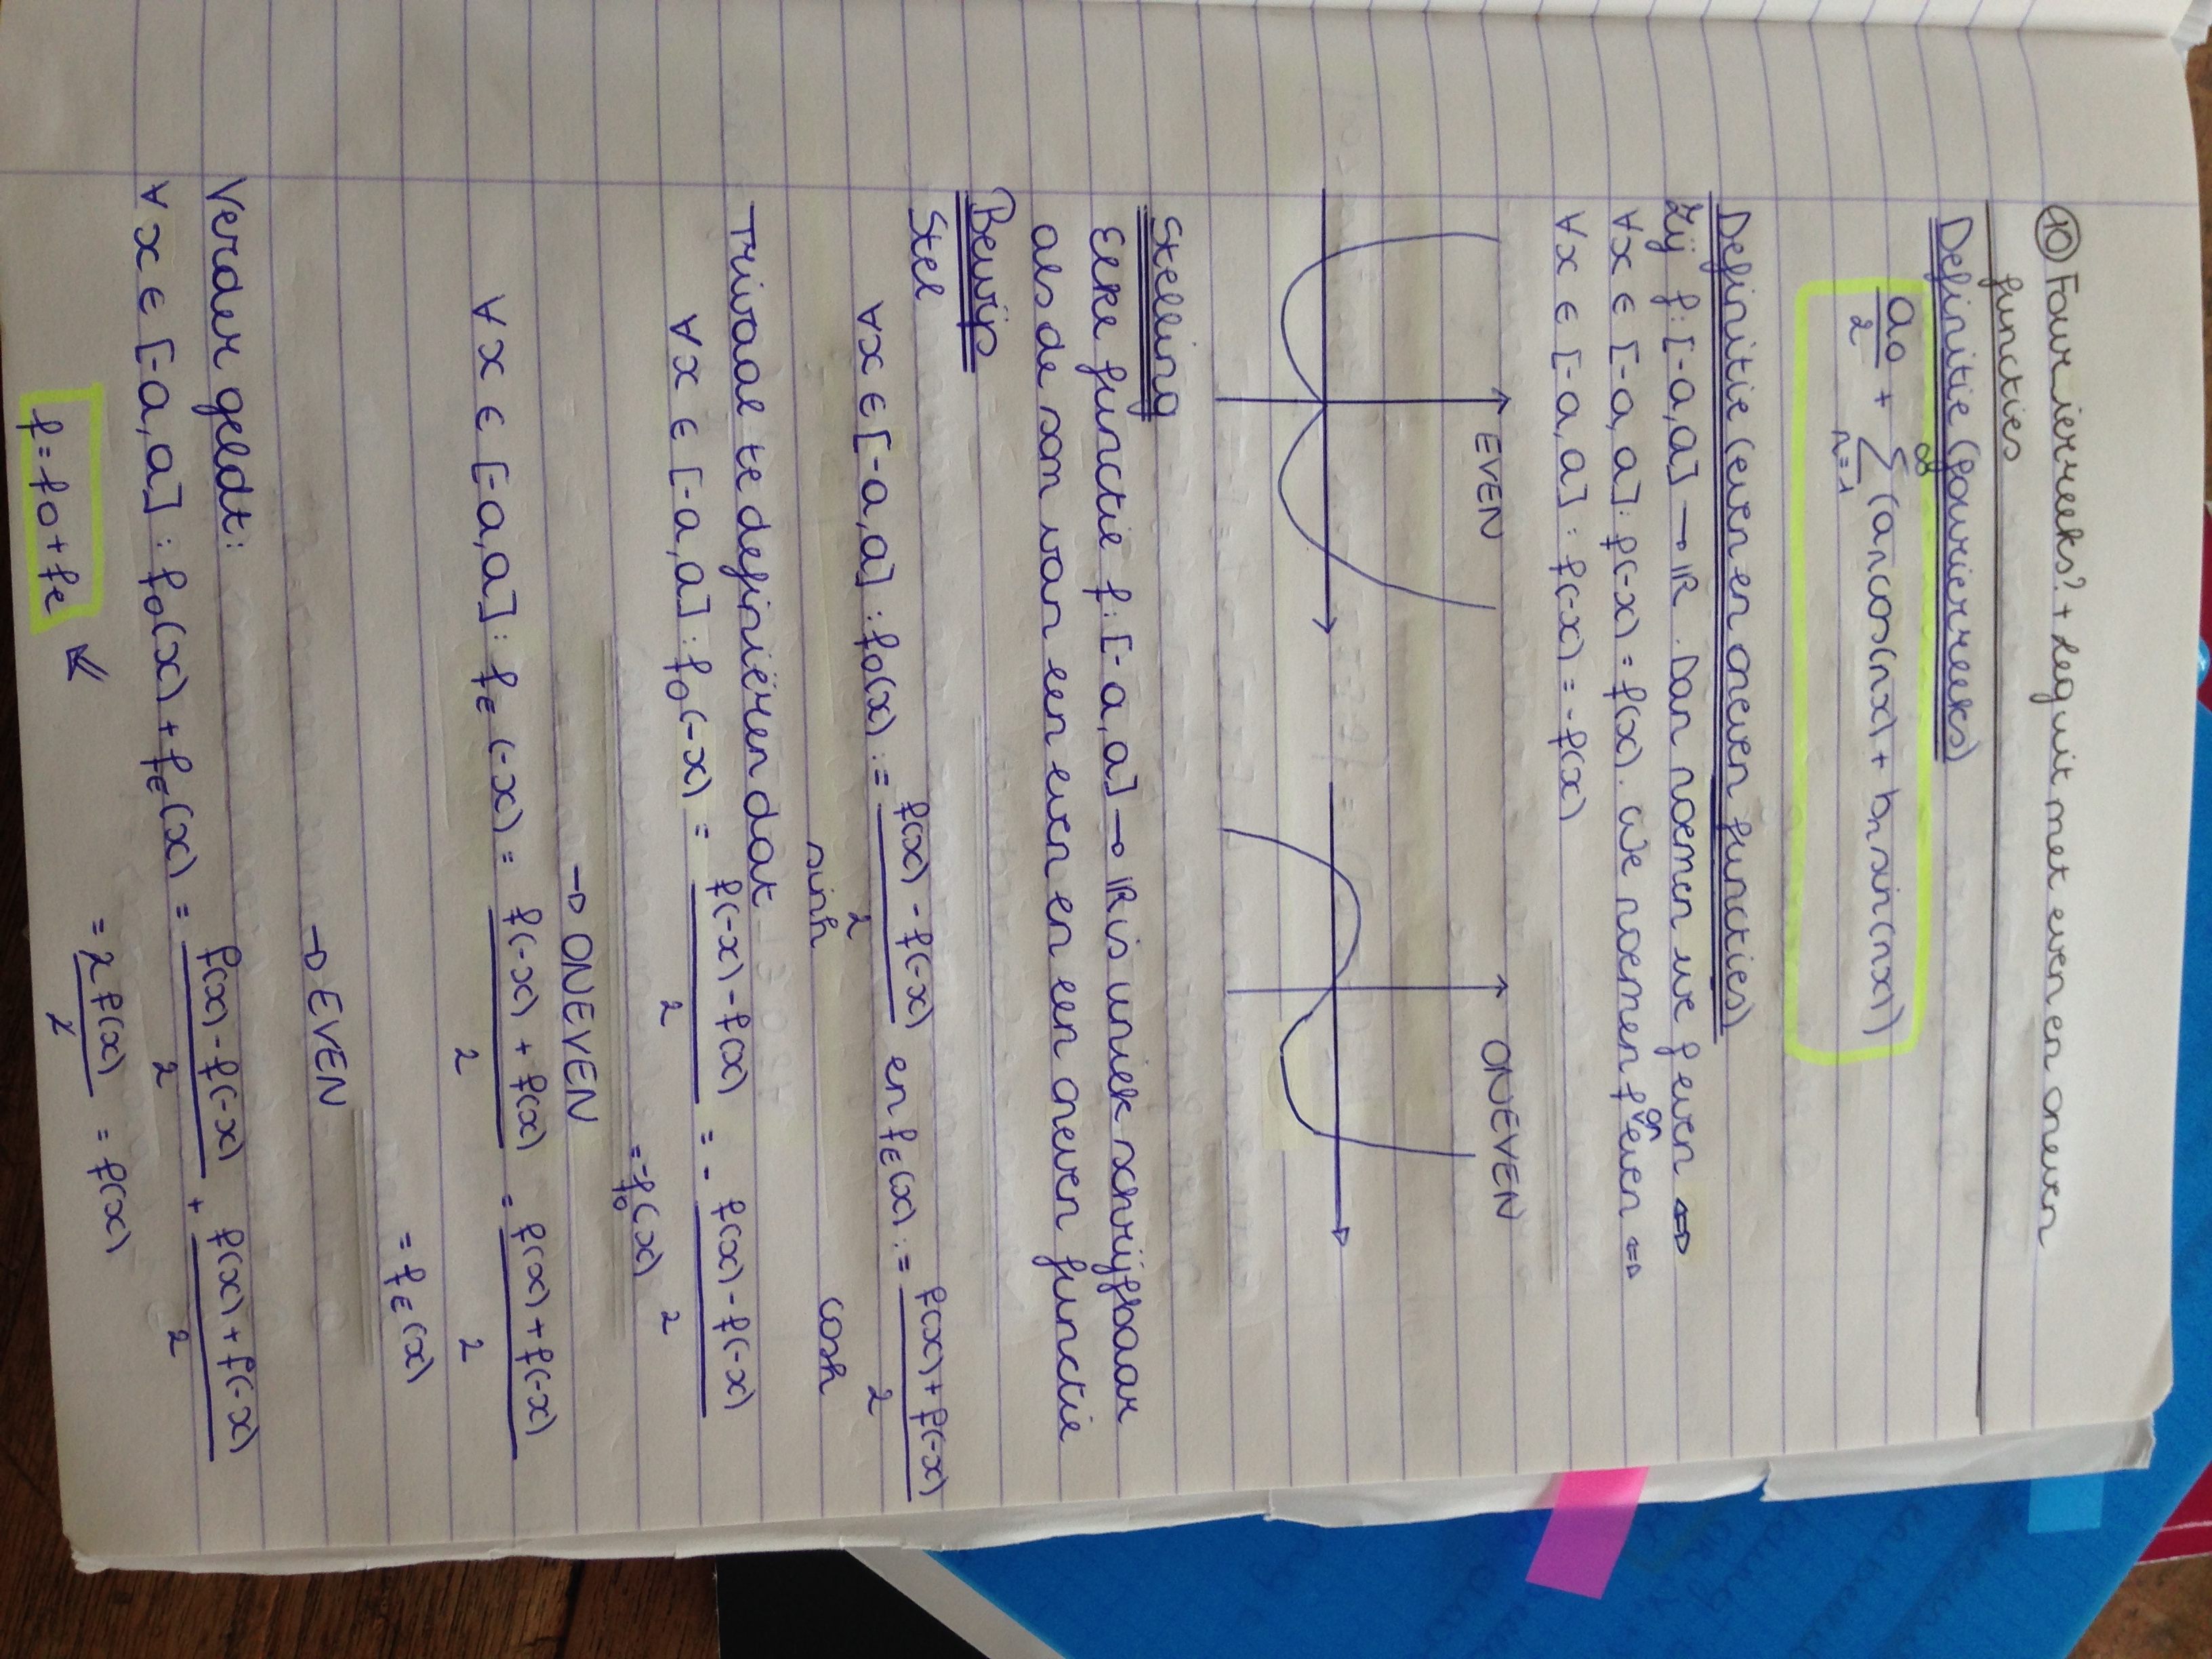 ⑩ Fourierreeks? + leg uit met even en oneven
functies
Definitie (fourierreeks)
a₀/2 + ∑_{n=1}^{∞} (aₙcos(nx) + bₙ sin(nx))
Definitie (even en oneven functies)
Zij f: [-a, a] → ℝ. Dan noemen we f even ⇔
∀x ∈ [-a, a]: f(-x) = f(x). We noemen f oneven ⇔
∀x ∈ [-a, a] : f(-x) = -f(x)
EVEN
ONEVEN
Stelling
Elke functie f: [-a, a] → ℝ is uniek schrijfbaar
als de som van een even en een oneven functie
Bewijs
Stel
∀x ∈ [-a, a] : f₀(x) := (f(x) - f(-x))/2 en f_E(x) := (f(x) + f(-x))/2
sinh cosh
Trivaal te definiëren dat
∀x ∈ [-a, a] : f₀(-x) = (f(-x) - f(x))/2 = - (f(x) - f(-x))/2
= -f₀(x)
→ ONEVEN
∀x ∈ [-a, a] : f_E(-x) = (f(-x) + f(x))/2 = (f(x) + f(-x))/2
= f_E(x)
→ EVEN
Verder geldt:
∀x ∈ [-a, a] : f₀(x) + f_E(x) = (f(x) - f(-x))/2 + (f(x) + f(-x))/2
= 2 f(x)/2 = f(x)
f = f₀ + fe ⇙